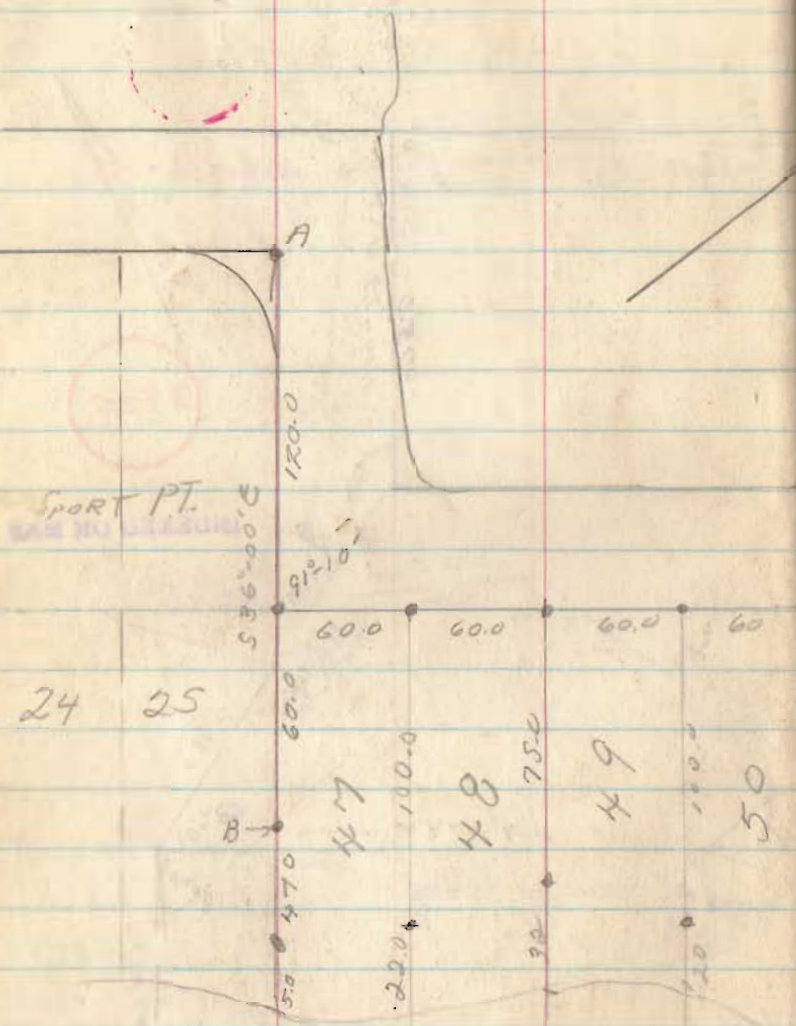 A
120.0
SPORT PT.
S 36°-00' E
91°-10'
60.0 60.0 60.0 60
24 25
60.0
47
100.0
48
75.0
49
100.0
50
B
47.0
5.0
22.0
32
20